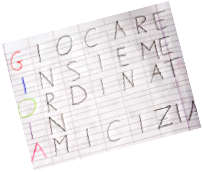 GIOCARE
INSIEME
ORDINAT
IN
AMICIZIA